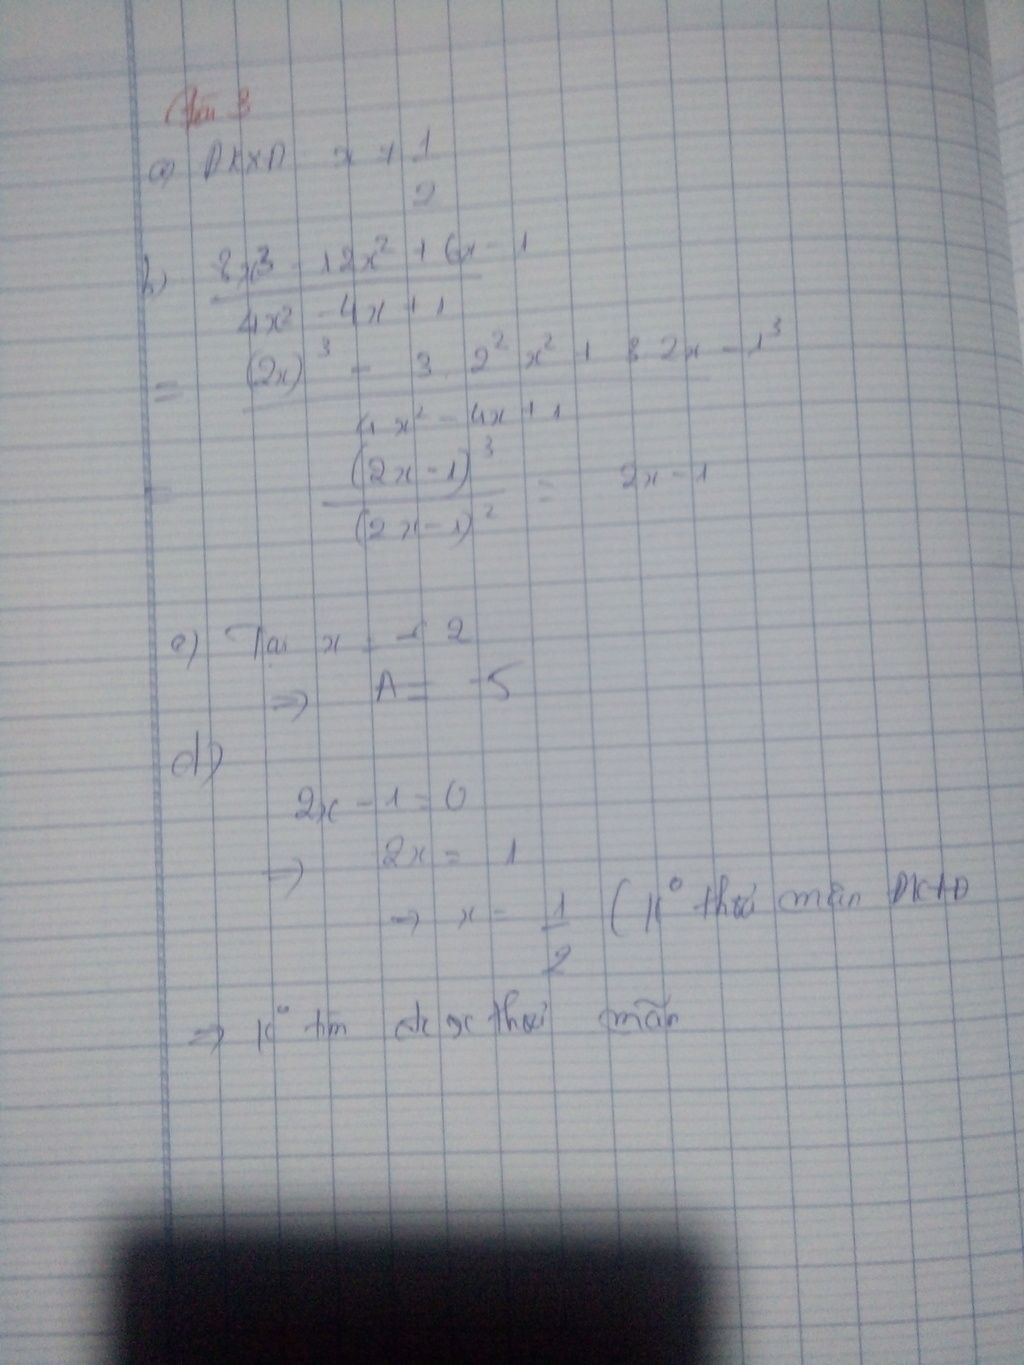 a) ĐKXĐ x ≠ 1/2
b) (8x³ - 12x² + 6x - 1)/(4x² - 4x + 1)
= ((2x)³ - 3. 2² x² + 3. 2x - 1³)/(4x² - 4x + 1)
= (2x-1)³/(2x-1)² = 2x-1
c) Tại x = -2
=> A = -5
d)
2x - 1 = 0
=> 2x = 1
=> x = 1/2 (K° thoả mãn ĐKXĐ
=> K° tìm đc x thoả mãn